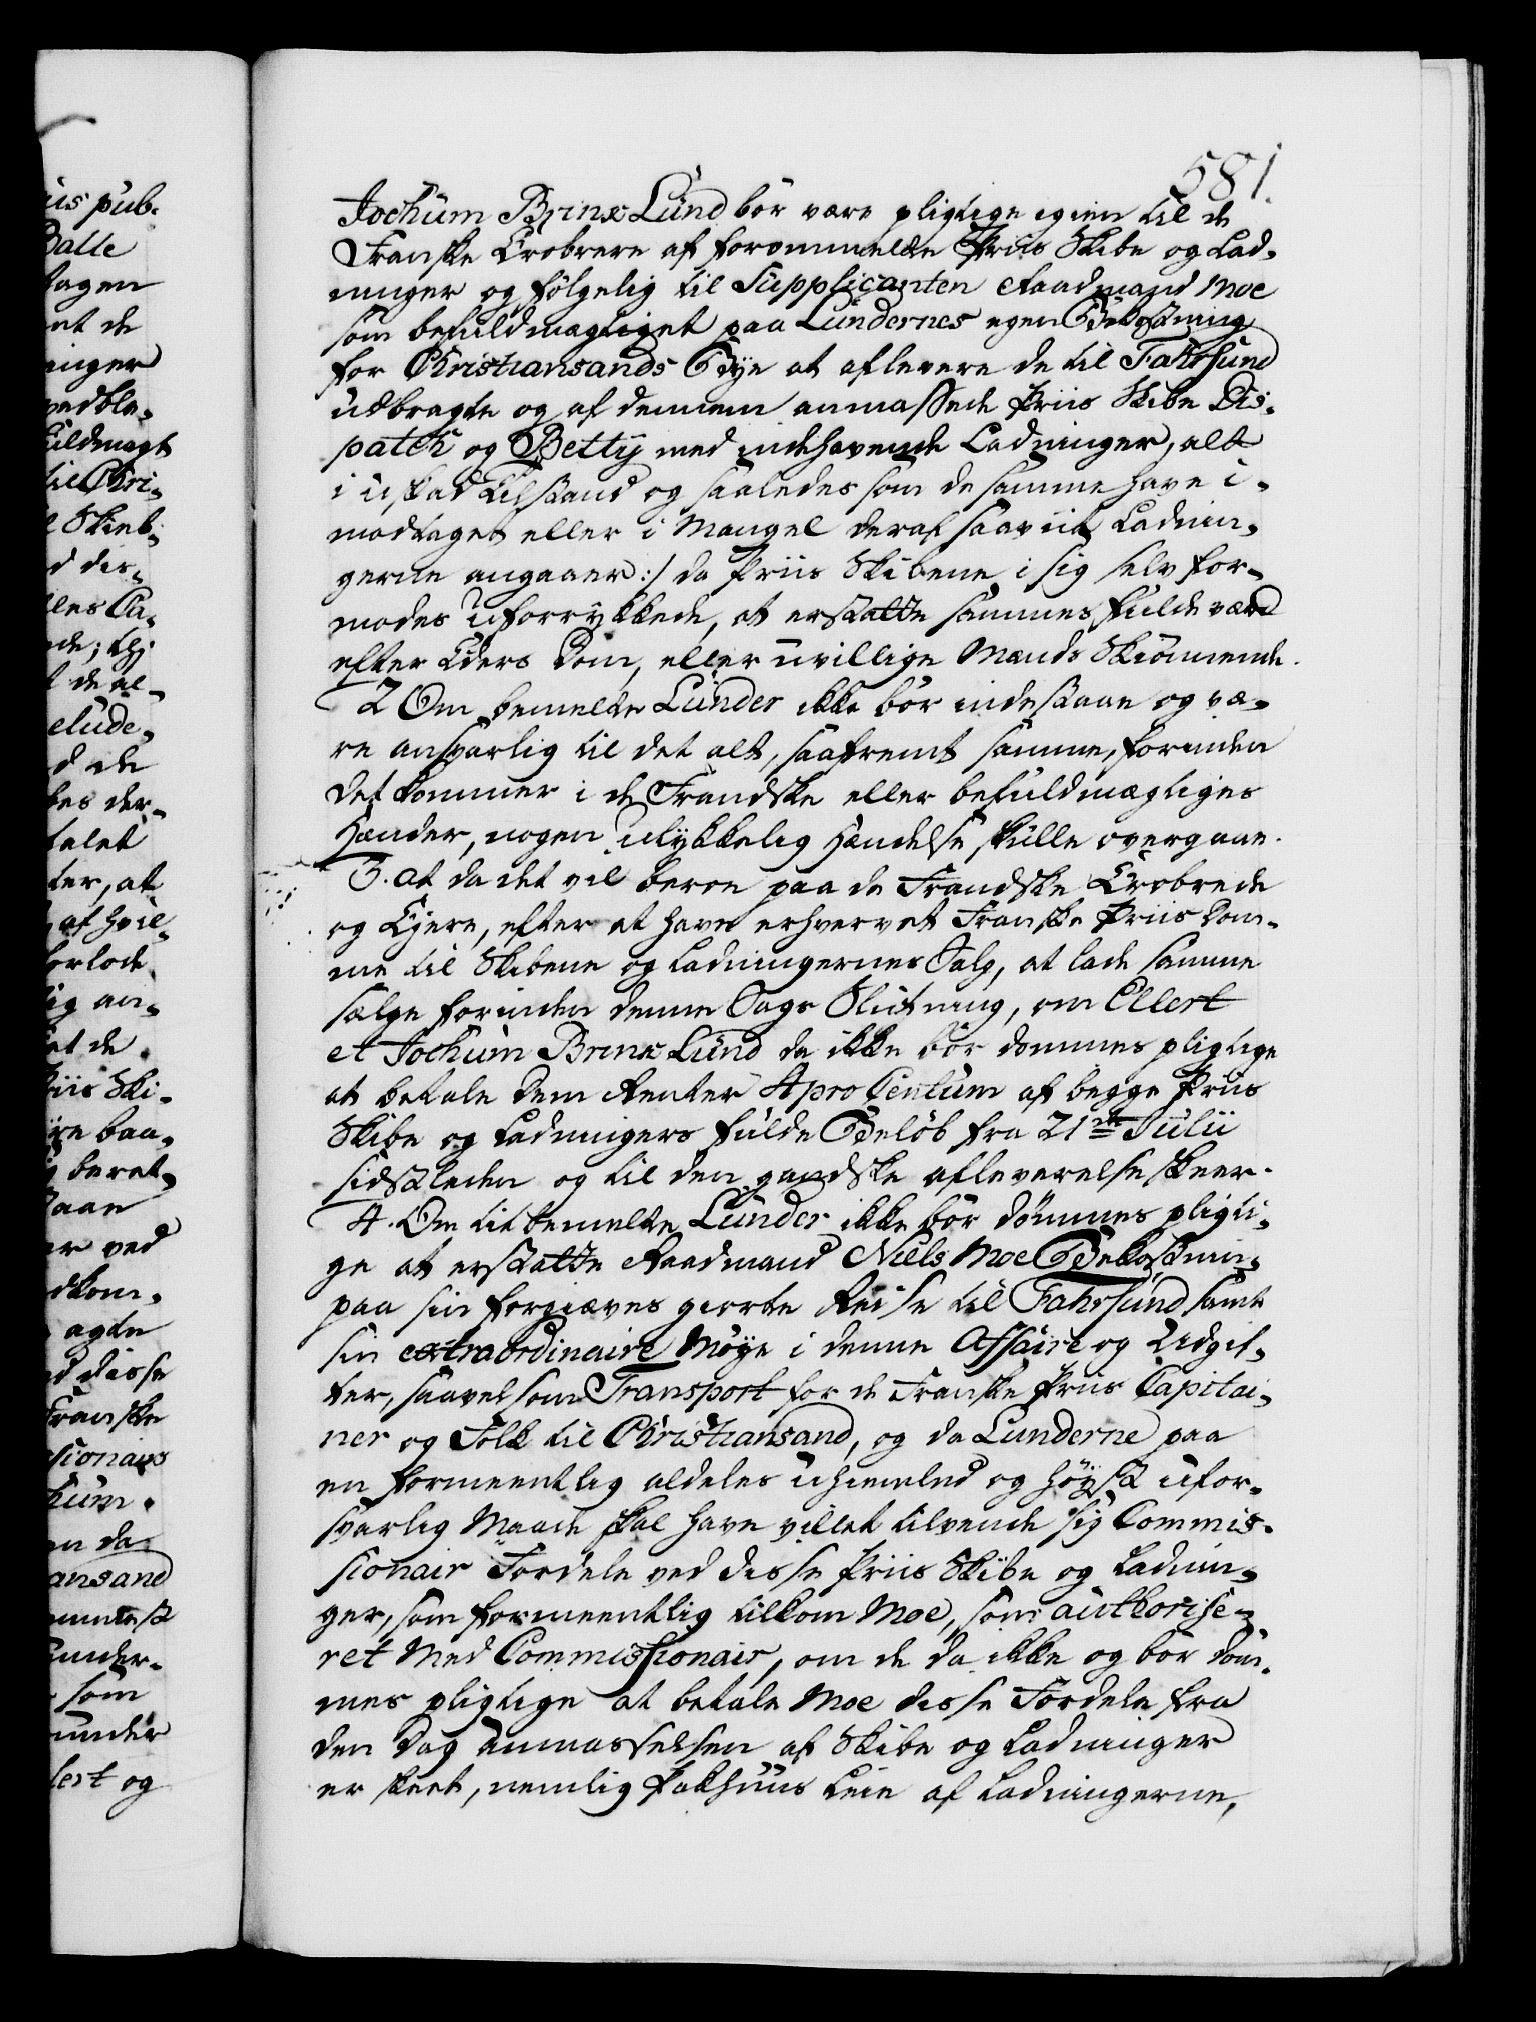 581.
Jochum Brinx Lund bör være pligtige igien til de
Franske Erobrere af forommeldte Priis Skibe og Lad-
ninger og fölgelig til Supplicanten Raadmand Moe
som befuldmægtiget paa Lundernes egen Bekostning
for Christiansands Bÿe at aflevere de til Fahrsund
udbragte og af dennem anmassede Priis Skibe Dis-
patch og Bettÿ med indehavende Ladninger, alt
i uskad Tilstand og saaledes som de samme have i-
modtaget eller i Mangel deraf saaviit Ladnin-
gerne angaaer :/ da Priis Skibene i sig selv for-
modes uforrykkede, at erstatte sammes fulde værd
efter Eders Dom, eller uvillige Mænds Skiönnende.
2 Om bemelte Lunder ikke bör indestaae og væ-
re ansvarlig til det alt, saafremt samme, forinden
det kommer i de Frandske eller befuldmægtiges
Hænder, nogen ulykkelig Hændelse skulle overgaae.
3. at da det vil beroe paa de Frandske Erobrede
og Ejere, efter at have erhvervet Franske Priis Dom-
me til Skibene og Ladningernes Salg, at lade samme
sælge forinden denne Sags Slutning, om Ellert
et Jochum Brinx Lund da ikke bör dömmes pligtige
at betale dem Renter 4 pro Centum af begge Priis
Skibe og Ladningers fulde Belöb fra 21de Julii
sidstleden og til den gandske afleverelse skeer.
4. Om titbemelte Lunder ikke bör dömmes pligti-
ge at erstatte Raadmand Niels Moe Bekostnin-
paa sin forgiæves giorte Reise til Fahrsund samt
sin extraordinaire Möÿe i denne Affaire og Udgif-
ter, saavelsom Transport for de Franske Priis Capitai-
ner og Folk til Christiansand, og da Lunderne paa
en formeentlig aldeles uhiemlet og höÿst ufor-
svarlig Maade skal have villet tilvende sig Commis-
sionair Fordele ved disse Priis Skibe og Ladnin-
ger, som formeentlig tilkom Moe, som authorise-
ret Med Commissionair, om de da ikke og bör döm-
mes pligtige at betale Moe disse Fordele fra
den Dag Anmasselsen af Skibe og Ladninger
er skeet, nemlig Pakhuus Leie af Ladningerne,